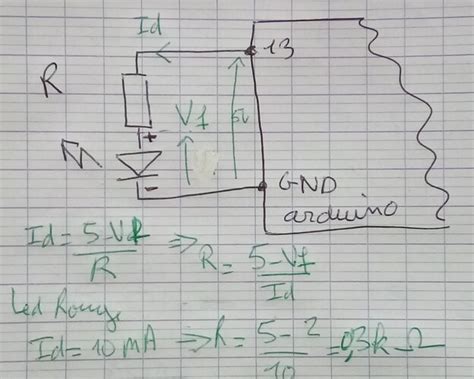 Id
13
R
Vf
5V
+
-
GND
arduino
Id = 5-Vf / R => R = 5-Vf / Id
Led Rouge
Id = 10 mA => R = 5-2 / 10 = 0,3k Ω